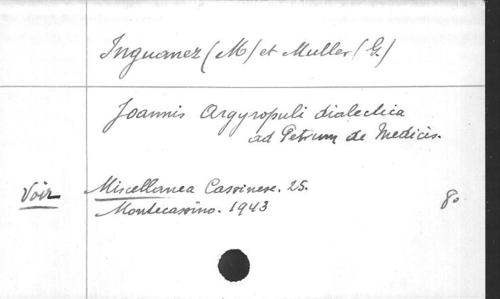 Inguanez (M) et Muller (G.)
Joannis Argyropuli dialectica
ad Petrum de Medicis.
Voir Miscellanea Cassinese. 25.
Montecassino. 1943
8°